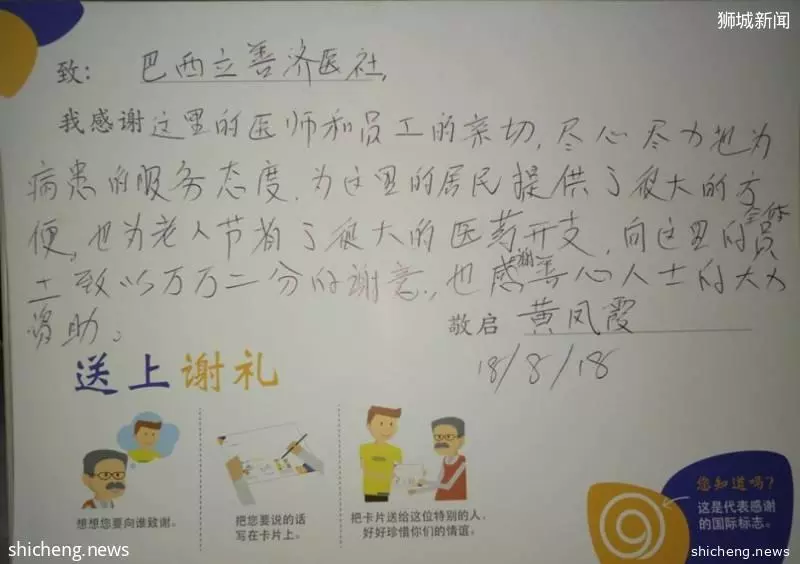 狮城新闻
致: 巴西立善济医社,
我感谢这里的医师和员工的亲切,尽心尽力地为
病患的服务态度,为这里的居民提供了很大的方
便,也为老人节省了很大的医药开支,向这里的全体员
工致以万万二分的谢意,也感谢善心人士的大力
资助。
敬启 黄凤霞
18/8/18
送上谢礼
想想您要向谁致谢。
把您要说的话
写在卡片上。
把卡片送给这位特别的人,
好好珍惜你们的情谊。
您知道吗?
这是代表感谢
的国际标志。
shicheng.news
shicheng.news